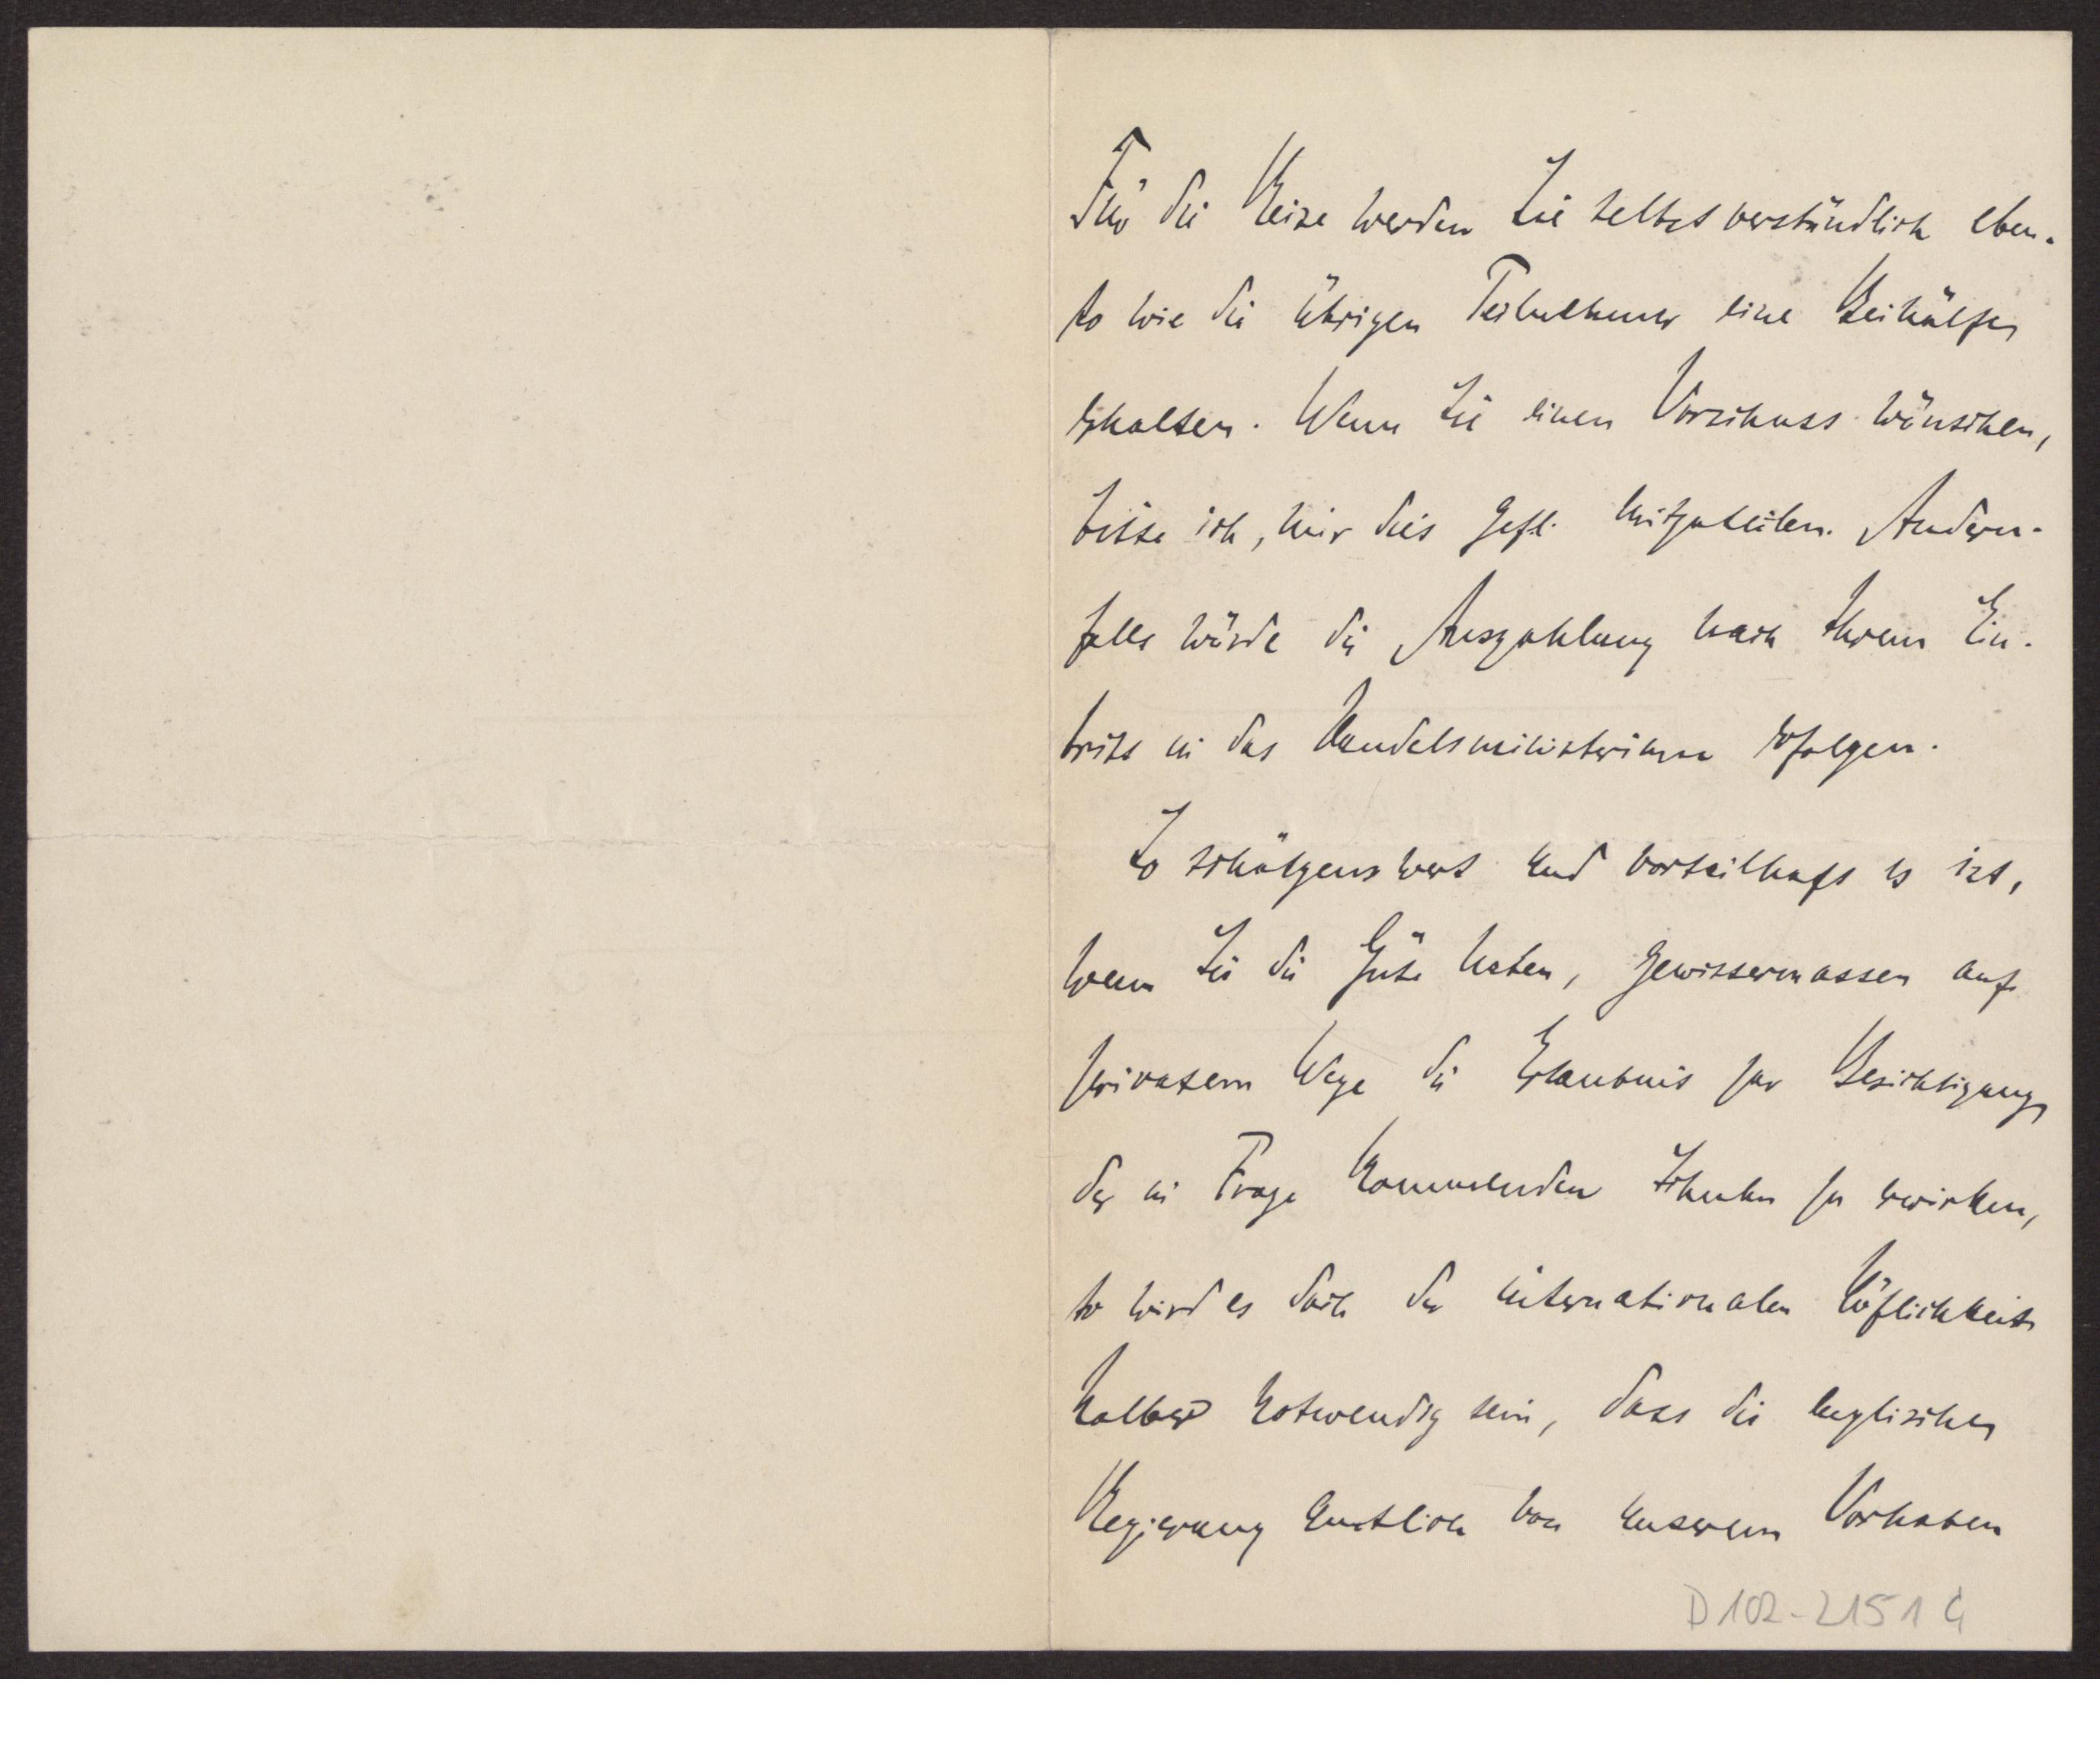 Für die Reise werden Sie selbstverständlich eben-
so wie die übrigen Teilnehmer eine Beihülfe
erhalten. Wenn Sie einen Vorschuss wünschen,
bitte ich, mir dies gefl. mitzuteilen. Andern-
falls würde die Auszahlung nach Ihrem Ein-
tritt in das Handelsministerium erfolgen.
So schätzenswert und vorteilhaft es ist,
wenn Sie die Güte haben, gewissermassen auf
privatem Wege die Erlaubnis zur Besichtigung
der in Frage kommenden Schulen zu erwirken,
so wird es doch der internationalen Höflichkeit
halber notwendig sein, dass die englische
Regierung amtlich von unserem Vorhaben
D 102-2151 G